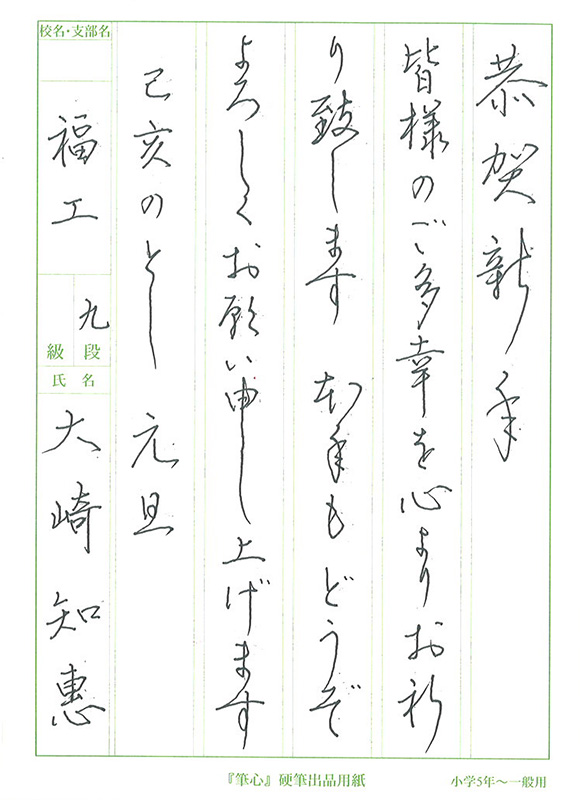 恭賀新年
皆様のご多幸を心よりお祈
り致します 本年もどうぞ
よろしくお願い申し上げます
己亥のとし 元旦
校名・支部名
福工
九
級 段
氏名
大崎知恵
『筆心』硬筆出品用紙
小学5年～一般用